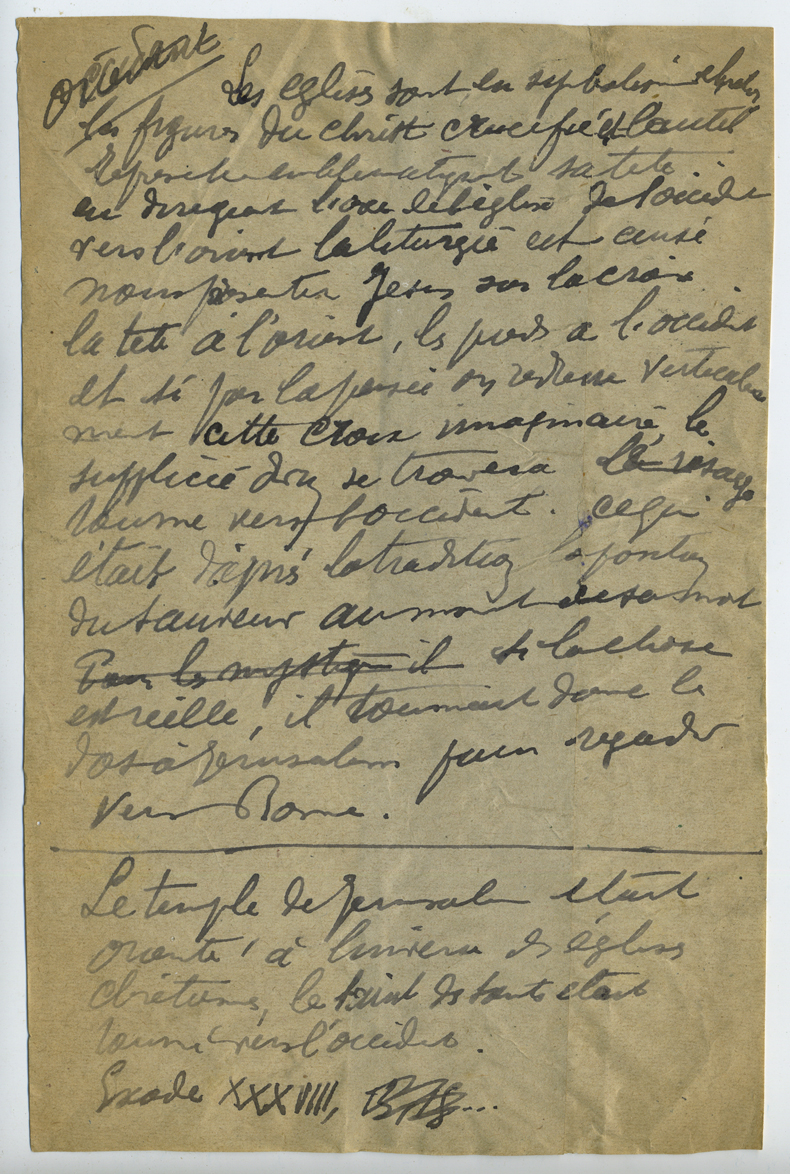 Occident
Les eglises sont en
les figures du christ crucifié et l'autel
sa tete
en dirigeant l'axe de l'église de l'occident
vers l'orient la liturgie est censé
nous présenter Jesus sur la croix
la tete à l'orient, les pieds a l'occident
et si par la pensée on redresse verticale
ment cette croix imaginaire, le
supplicié divin se trouvera le visage
tourné vers l'occident. ce qui
était d'après la tradition la position
du sauveur au moment de sa mort
Pour les mystiques il si la chose
est réelle, il tournait donc le
dos à Jérusalem pour regarder
vers Rome.
Le temple de Jerusalem etait
orienté à l'inverse des églises
chrétiennes, le saint des saints etait
tourné vers l'occident.
Exode XXXVIIII,